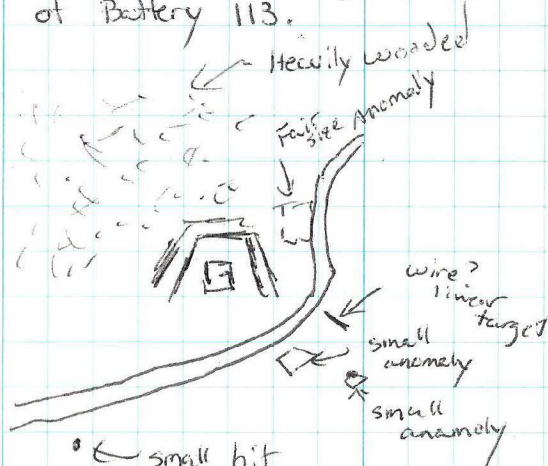 of Battery 113.
Heavily wooded
Fair size anomaly
wire?
linear
target
small
anomaly
small
anamoly
small hit